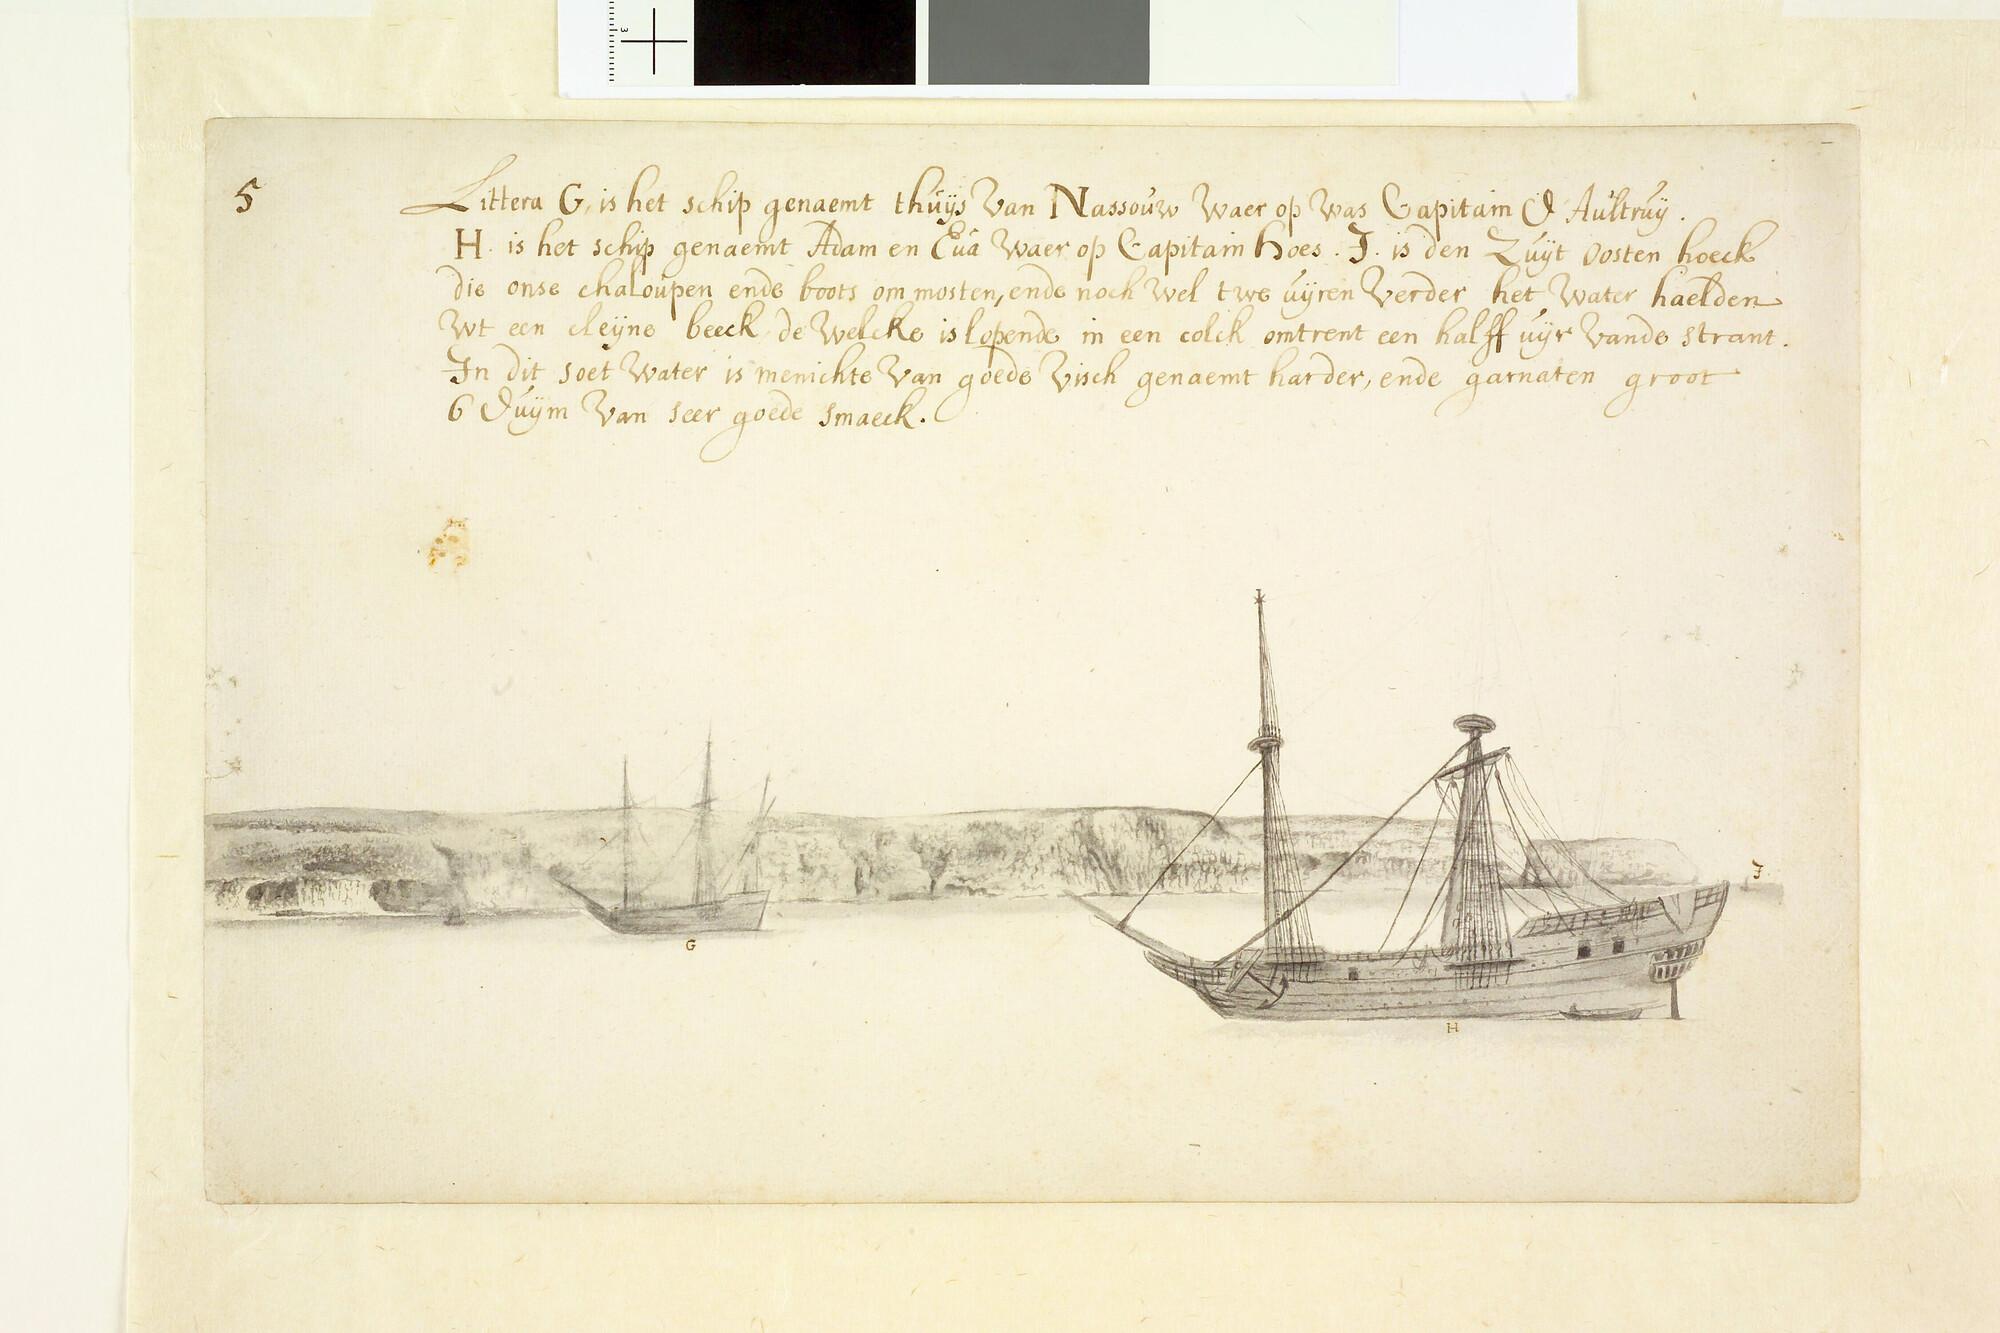 3
5
Littera G, is het schip genaemt thuÿs van Nassouw waer op was Capitain d Aultruÿ.
H. is het schip genaemt Adam en Eva waer op Capitain hoes. J. is den Zuÿt oosten hoeck
die onse chaloupen ende boots om mosten, ende noch wel twe uÿren verder het water haelden
wt een cleÿne beeck de welcke is lopende in een colck omtrent een halff uÿr vande strant.
In dit soet water is menichte van goede visch genaemt harder, ende garnaten groot
6 duÿm van seer goede smaeck.
J.
G
H